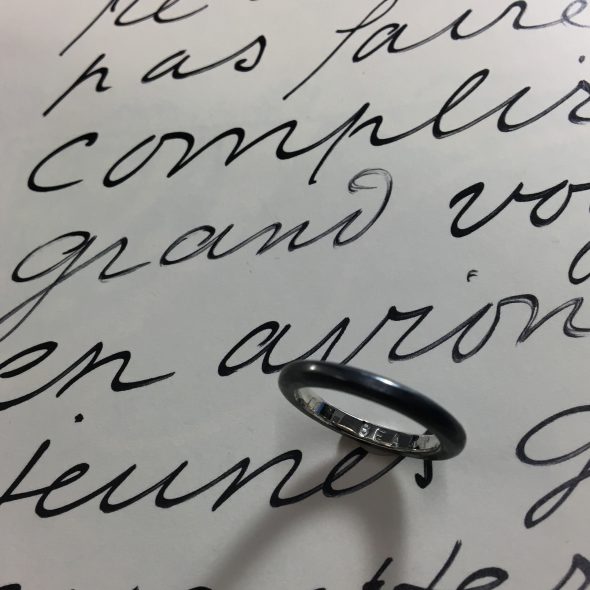 pas faire
complir
grand vo
en avion
jeunes g
BEA